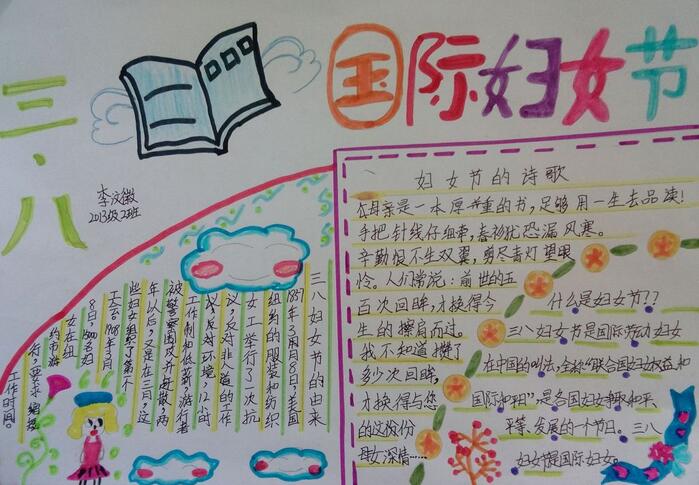 三·八
国际妇女节
李汶徽
2013级2班
三八妇女节的由来
1857年3月8日,美国
纽约的服装和纺织
女工举行了一次抗
议,反对非人道的工作
环境,12小时
工作制和低薪。游行者
被警察围攻并赶散,两
年以后,又是在三月,这
些妇女组织了第一个
工会。1908年3月
8日,1500名妇
女在纽
约市游
行,要求缩短
工作时间。
妇女节的诗歌
《母亲是一本厚重的书,足够用一生去品读!
手把针线仔细牵,春衫犹恐漏风寒。
辛勤恨不生双翼,剪尽青灯望眼
人们常说:前世的五
百次回眸,才换得今
生的擦肩而过。
我不知道攒了
多少次回眸,
才换得与您
的这份
母女深情……
什么是妇女节??
三八妇女节是国际劳动妇女
在中国的叫法,全称"联合国妇女权益和
国际和平",是各国妇女争取和平
平等、发展的一个节日。三八
妇女节是国际妇女。